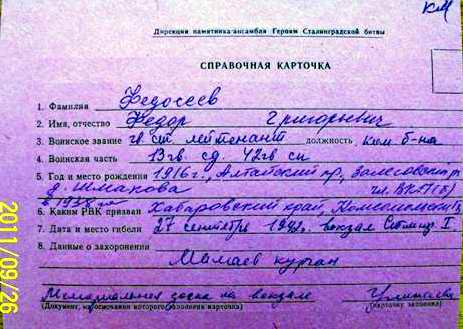 КМ
Дирекция памятника-ансамбля Героям Сталинградской битвы
СПРАВОЧНАЯ КАРТОЧКА
1. Фамилия Федосеев
2. Имя, отчество Федор Григорьевич
3. Воинское звание гв. ст. лейтенант должность ком. б-на
4. Воинская часть 13 гв. сд 42 гв сп
5. Год и место рождения 1916 г., Алтайский кр, Залесовский р
д. Шмакова чл. ВКП(б)
в 1938
6. Каким РВК призван Хабаровский край, Комсомольский
7. Дата и место гибели 27 сентября 1942, вокзал I
8. Данные о захоронении
Мамаев курган
Мемориальная доска на вокзале
(Документ, на основании которого заполнена карточка) (карточку заполнил)
2011/09/26